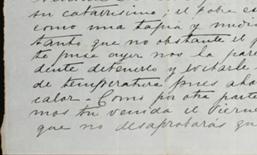 tu catarrísimo: el pobre es
como una tapia y medi
tanto que no obstante el p
te puso ayer nos la pare
dente detenerlo y evitarle
de temperatura pues aho
calor. Como por otra parte
mos tu venida el viern
que no desaprobarás qu